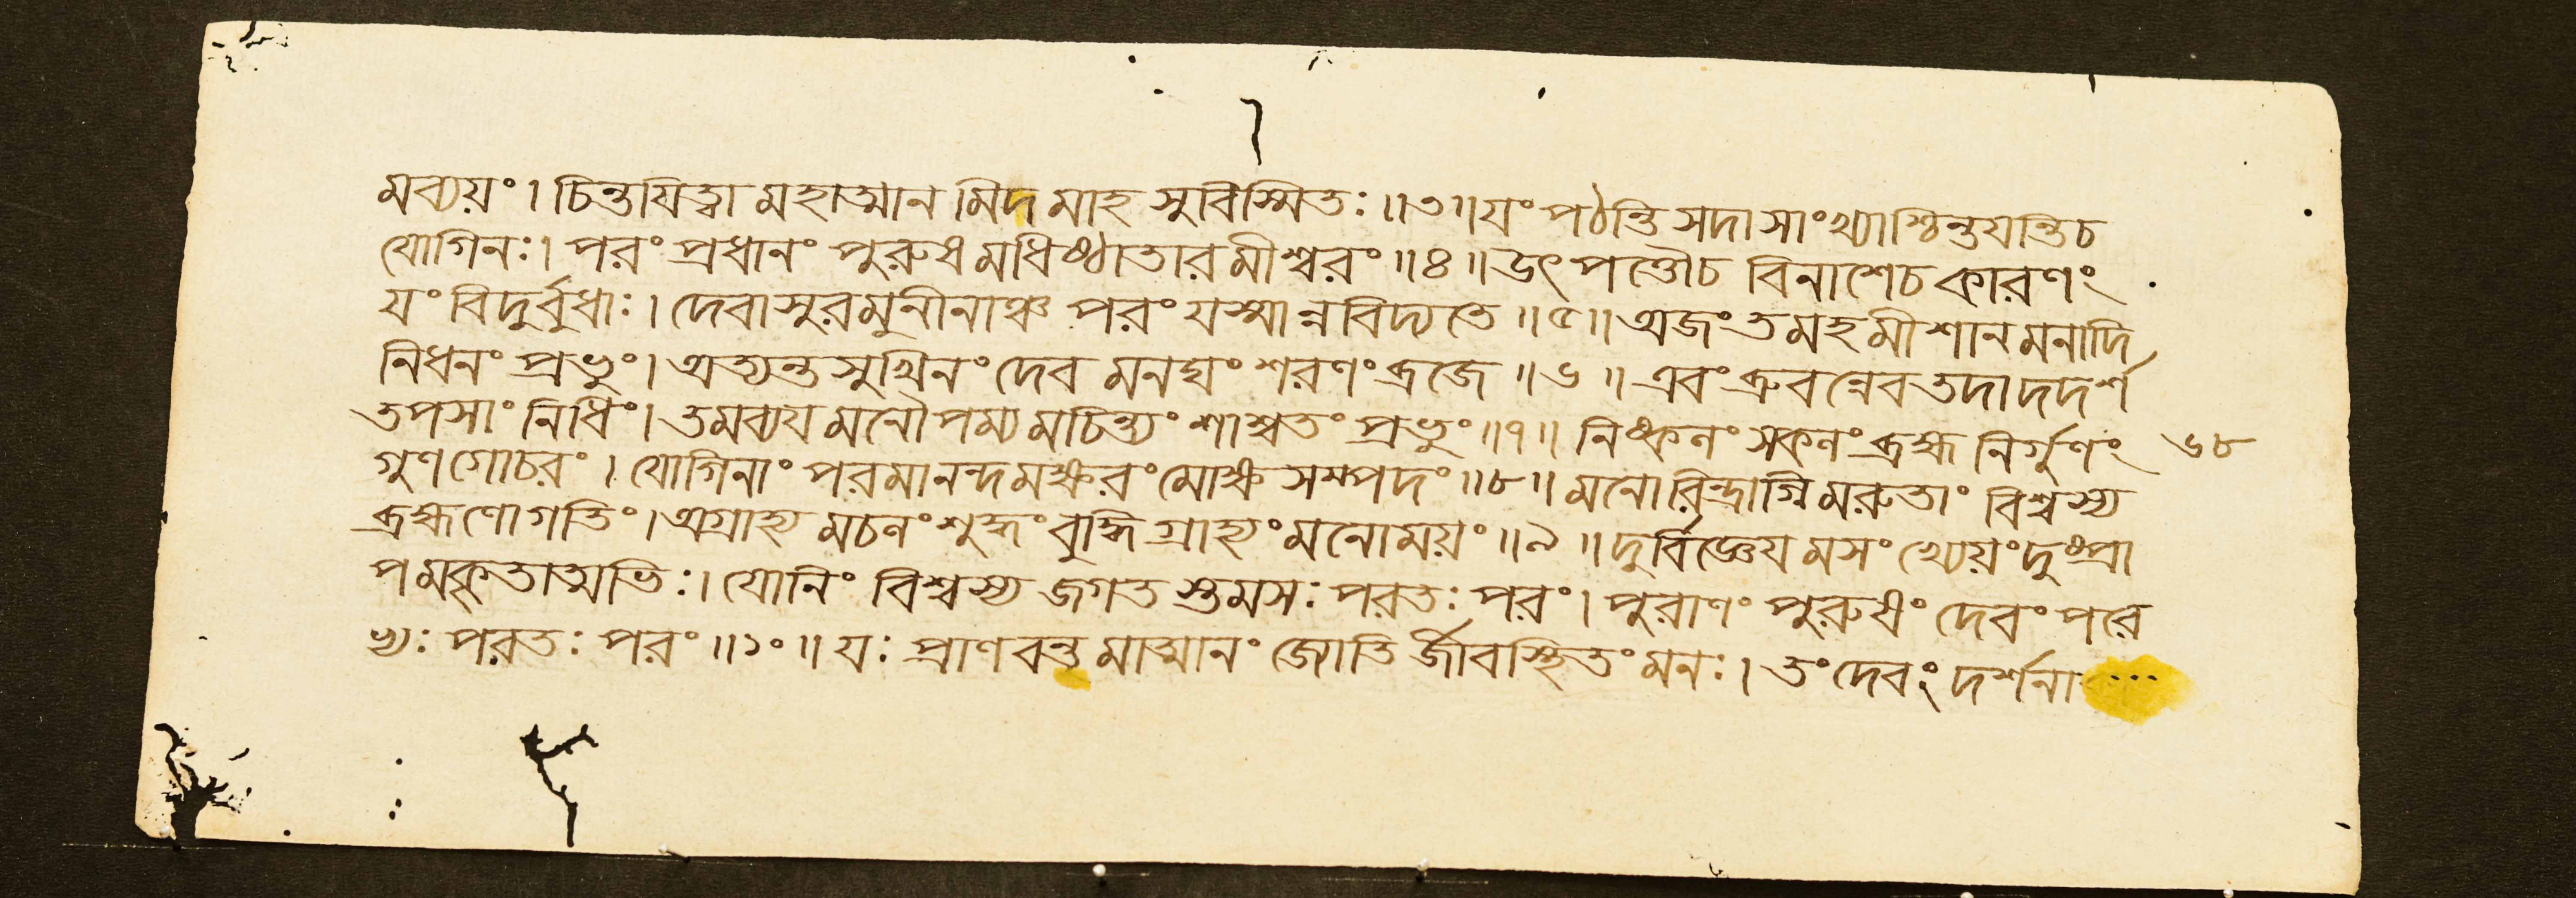 মব্যয়ং। চিন্তযিত্বা মহাত্মান মিদ মাহ সুবিস্মিতঃ॥৩॥যং পঠন্তি সদা সাংখ্যাশ্চিন্তযন্তি চ
যোগিনঃ। পরং প্রধানং পুরুষ মধিষ্ঠাতার মীশ্বরং॥৪॥উৎ পত্তৌ চ বিনাশে চ কারণং
যং বিদুর্বুধাঃ। দেবাসুরমুনীনাঞ্চ পরং যস্মান্নবিদ্যতে॥৫॥অজং তমহমীশান মনাদি
নিধনং প্রভুং। অত্যন্ত সুখিনং দেব মনঘং শরণং ব্রজে॥৬॥এবং ব্রুবন্নেব তদা দদর্শ
তপসাং নিধিং। তমব্যয মনৌপম্য মচিন্ত্যং শাশ্বতং প্রভুং॥৭॥ নিষ্কলং সকলং ব্রহ্ম নির্গুণং ৬৮
গুণ গোচরং। যোগিনাং পরমানন্দমক্ষরং মোক্ষ সম্পদং॥৮॥মনোরিন্দ্রাগ্নি মরুতাং বিশ্বস্য
ব্রহ্মণো গতিং। অগ্রাহ্য মচলং শুদ্ধং বুদ্ধি গ্রাহ্যং মনোময়ং॥৯॥দুর্বিজ্ঞেয মসংখ্যেয়ং দুষ্প্রা
পমকৃতাত্মভিঃ। যোনিং বিশ্বস্য জগত স্তমসঃ পরতঃ পরং। পুরাণং পুরুষং দেবং পরে
ভ্যঃ পরতঃ পরং॥১০॥ যঃ প্রাণবন্ত মাত্মানং জ্যোতি র্জীবস্থিতং মনঃ। তং দেবং দর্শনা ...